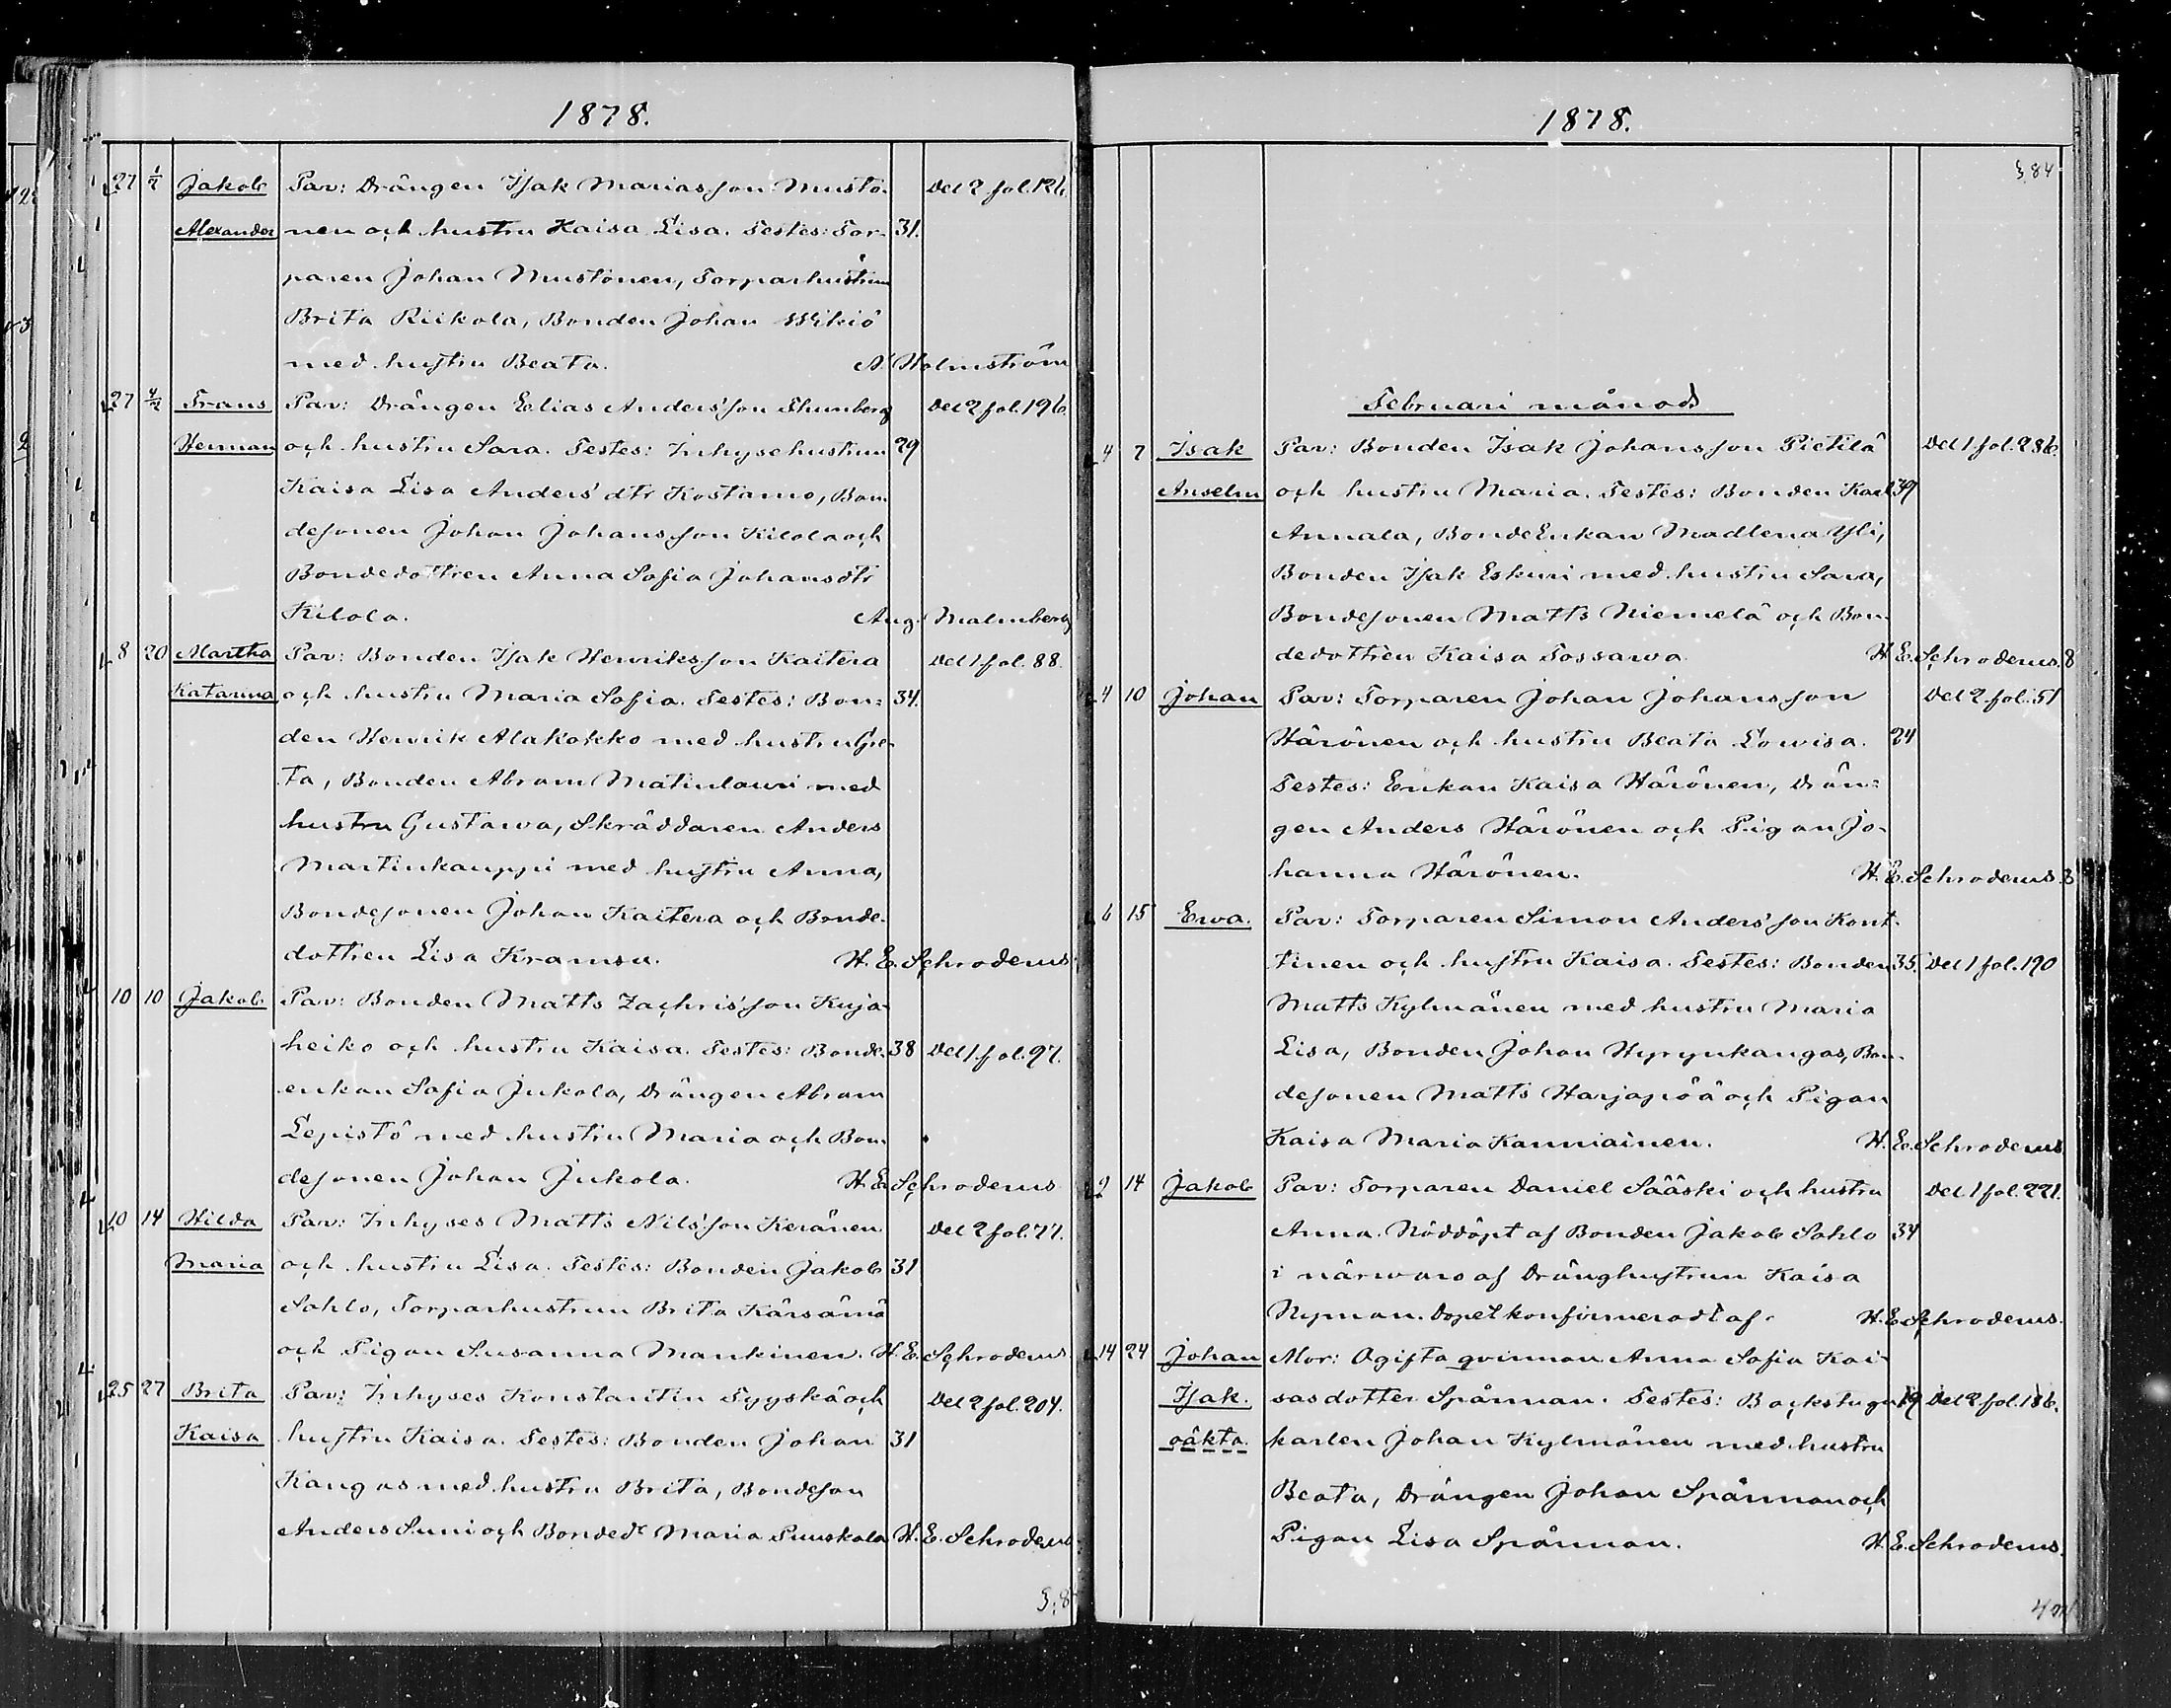 1878.
27 1/2 Jakob Par: Drängen Isak Mariasson Musto- Del 2 fol. 126.
Alexander nen och hustru Kaisa Lisa. Testes: Tor- 31.
paren Johan Mustonen, Torparhustrun
Brita Riikola, Bonden Johan Wikiö
med hustru Beata. A. Holmström
27 4/2 Frans Par: Drängen Elias Anders'son Thunberg Del 2 fol. 196.
Herman och hustru Sara. Testes: Inhysehustrun 29
Kaisa Lisa Anders'dtr Kostamo, Bon-
desonen Johan Johansson Kilola och
Bondedottren Anna Sofia Johansdtr
Kilola. Aug. Malmberg
8 20 Martha Par: Bonden Isak Henriksson Kaitera Del 1 fol. 88.
Katarina och hustru Maria Sofia. Testes: Bon= 34.
den Henrik Alakokko med hustru Gre-
ta, Bonden Abram Matinlauri med
hustru Gustawa, Skräddaren Anders
Martinkauppi med hustru Anna,
Bondesonen Johan Kaitera och Bonde-
dottren Lisa Kramsu. H. E. Schroderus
10 10 Jakob Par: Bonden Matts Zachris'son Kuja-
heiko och hustru Kaisa. Testes: Bonde- 38 Del 1 fol. 97.
enkan Sofia Jukola, Drängen Abram
Lepistö med hustru Maria och Bon-
desonen Johan Jukola. H. E. Schroderus
10 14 Hilda Par: Inhyses Matts Nils'son Keränen Del 2 fol. 77.
Maria och hustru Lisa. Testes: Bonden Jakob 31
Sohlo, Torparhustrun Brita Kärsämä
och Pigan Susanna Mankinen. H. E. Schroderus
25 27 Brita Par: Inhyses Konstantin Tyyskä och Del 2 fol. 204.
Kaisa hustru Kaisa. Testes: Bonden Johan 31
Kangas med hustru Brita, Bondeson
Anders Suni och Bondedr Maria Puuskala H. E. Schroderus
1878.
384
Februari månad
4 7 Isak Par: Bonden Isak Johansson Pietilä Del 1 fol. 286.
Anselm och hustru Maria. Testes: Bonden Karl 39
Annala, BondeEnkan Madlena Yli,
Bonden Isak Eskuri med hustru Sara,
Bondesonen Matts Niemelä och Bon-
dedottren Kaisa Tossawa H. E. Schroderus. 8
4 10 Johan Par: Torparen Johan Johansson Del 2 fol. 51
Härönen och hustru Beata Lowisa. 24
Testes: Enkan Kaisa Härönen, Drän=
gen Anders Härönen och Pigan Jo-
hanna Härönen. H. E. Schroderus. 8
6 15 Ewa. Par: Torparen Simon Anders'son Kont-
tinen och hustru Kaisa. Testes: Bonden 35. Del 1 fol. 190
Matts Kylmänen med hustru Maria
Lisa, Bonden Johan Hyrynkangas, Bon-
desonen Matts Harjapää och Pigan
Kaisa Maria Kanniainen. H. E. Schroderus
9 14 Jakob Par: Torparen Daniel Sääski och hustru Del 1 fol. 221.
Anna. Nöddöpt af Bonden Jakob Sohlo 34
i närwaro af Dränghustrun Kaisa
Nyman. Dopet konfirmeradt af. H. E. Schroderus.
14 24 Johan Mor: Ogifta qvinnan Anna Sofia Kai-
Isak. sasdotter Spårman. Testes: Backstugu- 19 Del 2 fol. 186.
oäkta. karlen Johan Kylmänen med hustru
Beata, Drängen Johan Spårman och
Pigan Lisa Spårman. H. E. Schroderus.